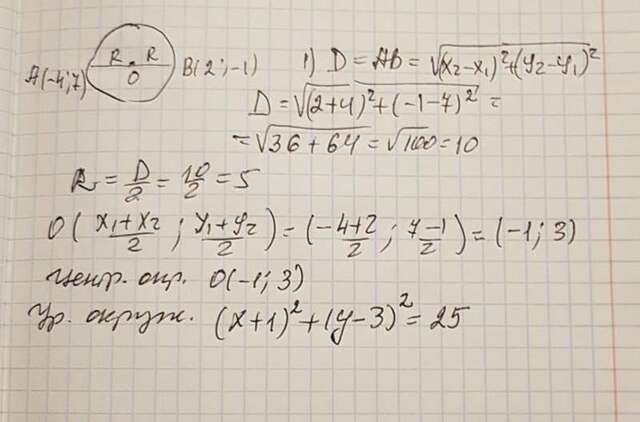 R R
O
A(-4;7)
B(2;-1)
1) D = AB = √(x₂-x₁)²+(y₂-y₁)²
D = √(2+4)²+(-1-7)² =
= √36+64 = √100 = 10
R = D/2 = 10/2 = 5
O( x₁+x₂/2 ; y₁+y₂/2 ) = ( -4+2/2 ; 7-1/2 ) = (-1; 3)
центр. окр. O(-1; 3)
Ур. окруж. (x+1)²+(y-3)² = 25